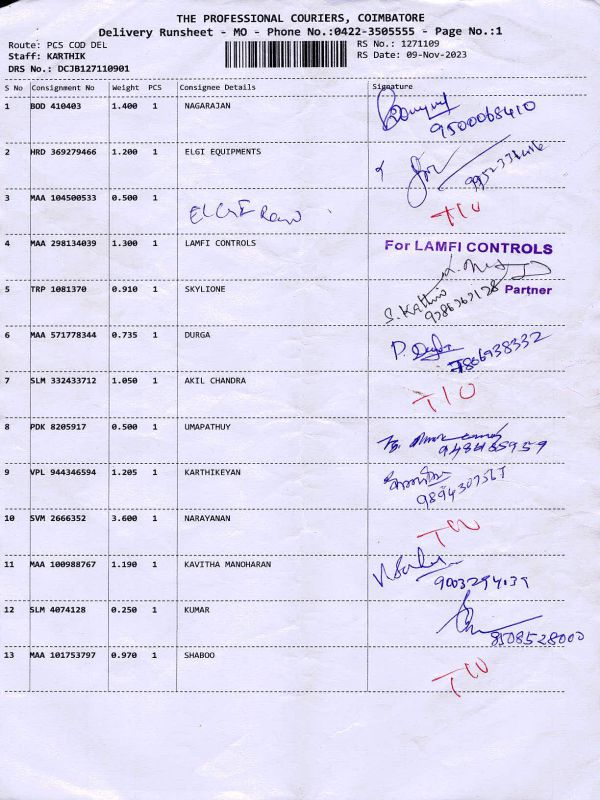 THE PROFESSIONAL COURIERS, COIMBATORE
Delivery Runsheet - MO - Phone No.:0422-3505555 - Page No.:1
Route: PCS COD DEL RS No.: 1271109
Staff: KARTHIK RS Date: 09-Nov-2023
DRS No.: DCJB127110901
S No Consignment No Weight PCS Consignee Details Signature
1 BOD 410403 1.400 1 NAGARAJAN
9500068410
2 HRD 369279466 1.200 1 ELGI EQUIPMENTS
3 MAA 104500533 0.500 1
4 MAA 298134039 1.300 1 LAMFI CONTROLS For LAMFI CONTROLS
5 TRP 1081370 0.910 1 SKYLIONE Partner
6 MAA 571778344 0.735 1 DURGA
7866938332
7 SLM 332433712 1.050 1 AKIL CHANDRA
8 PDK 8205917 0.500 1 UMAPATHUY
9 VPL 944346594 1.205 1 KARTHIKEYAN
10 SVM 2666352 3.600 1 NARAYANAN
11 MAA 100988767 1.190 1 KAVITHA MANOHARAN
12 SLM 4074128 0.250 1 KUMAR
8508528000
13 MAA 101753797 0.970 1 SHABOO